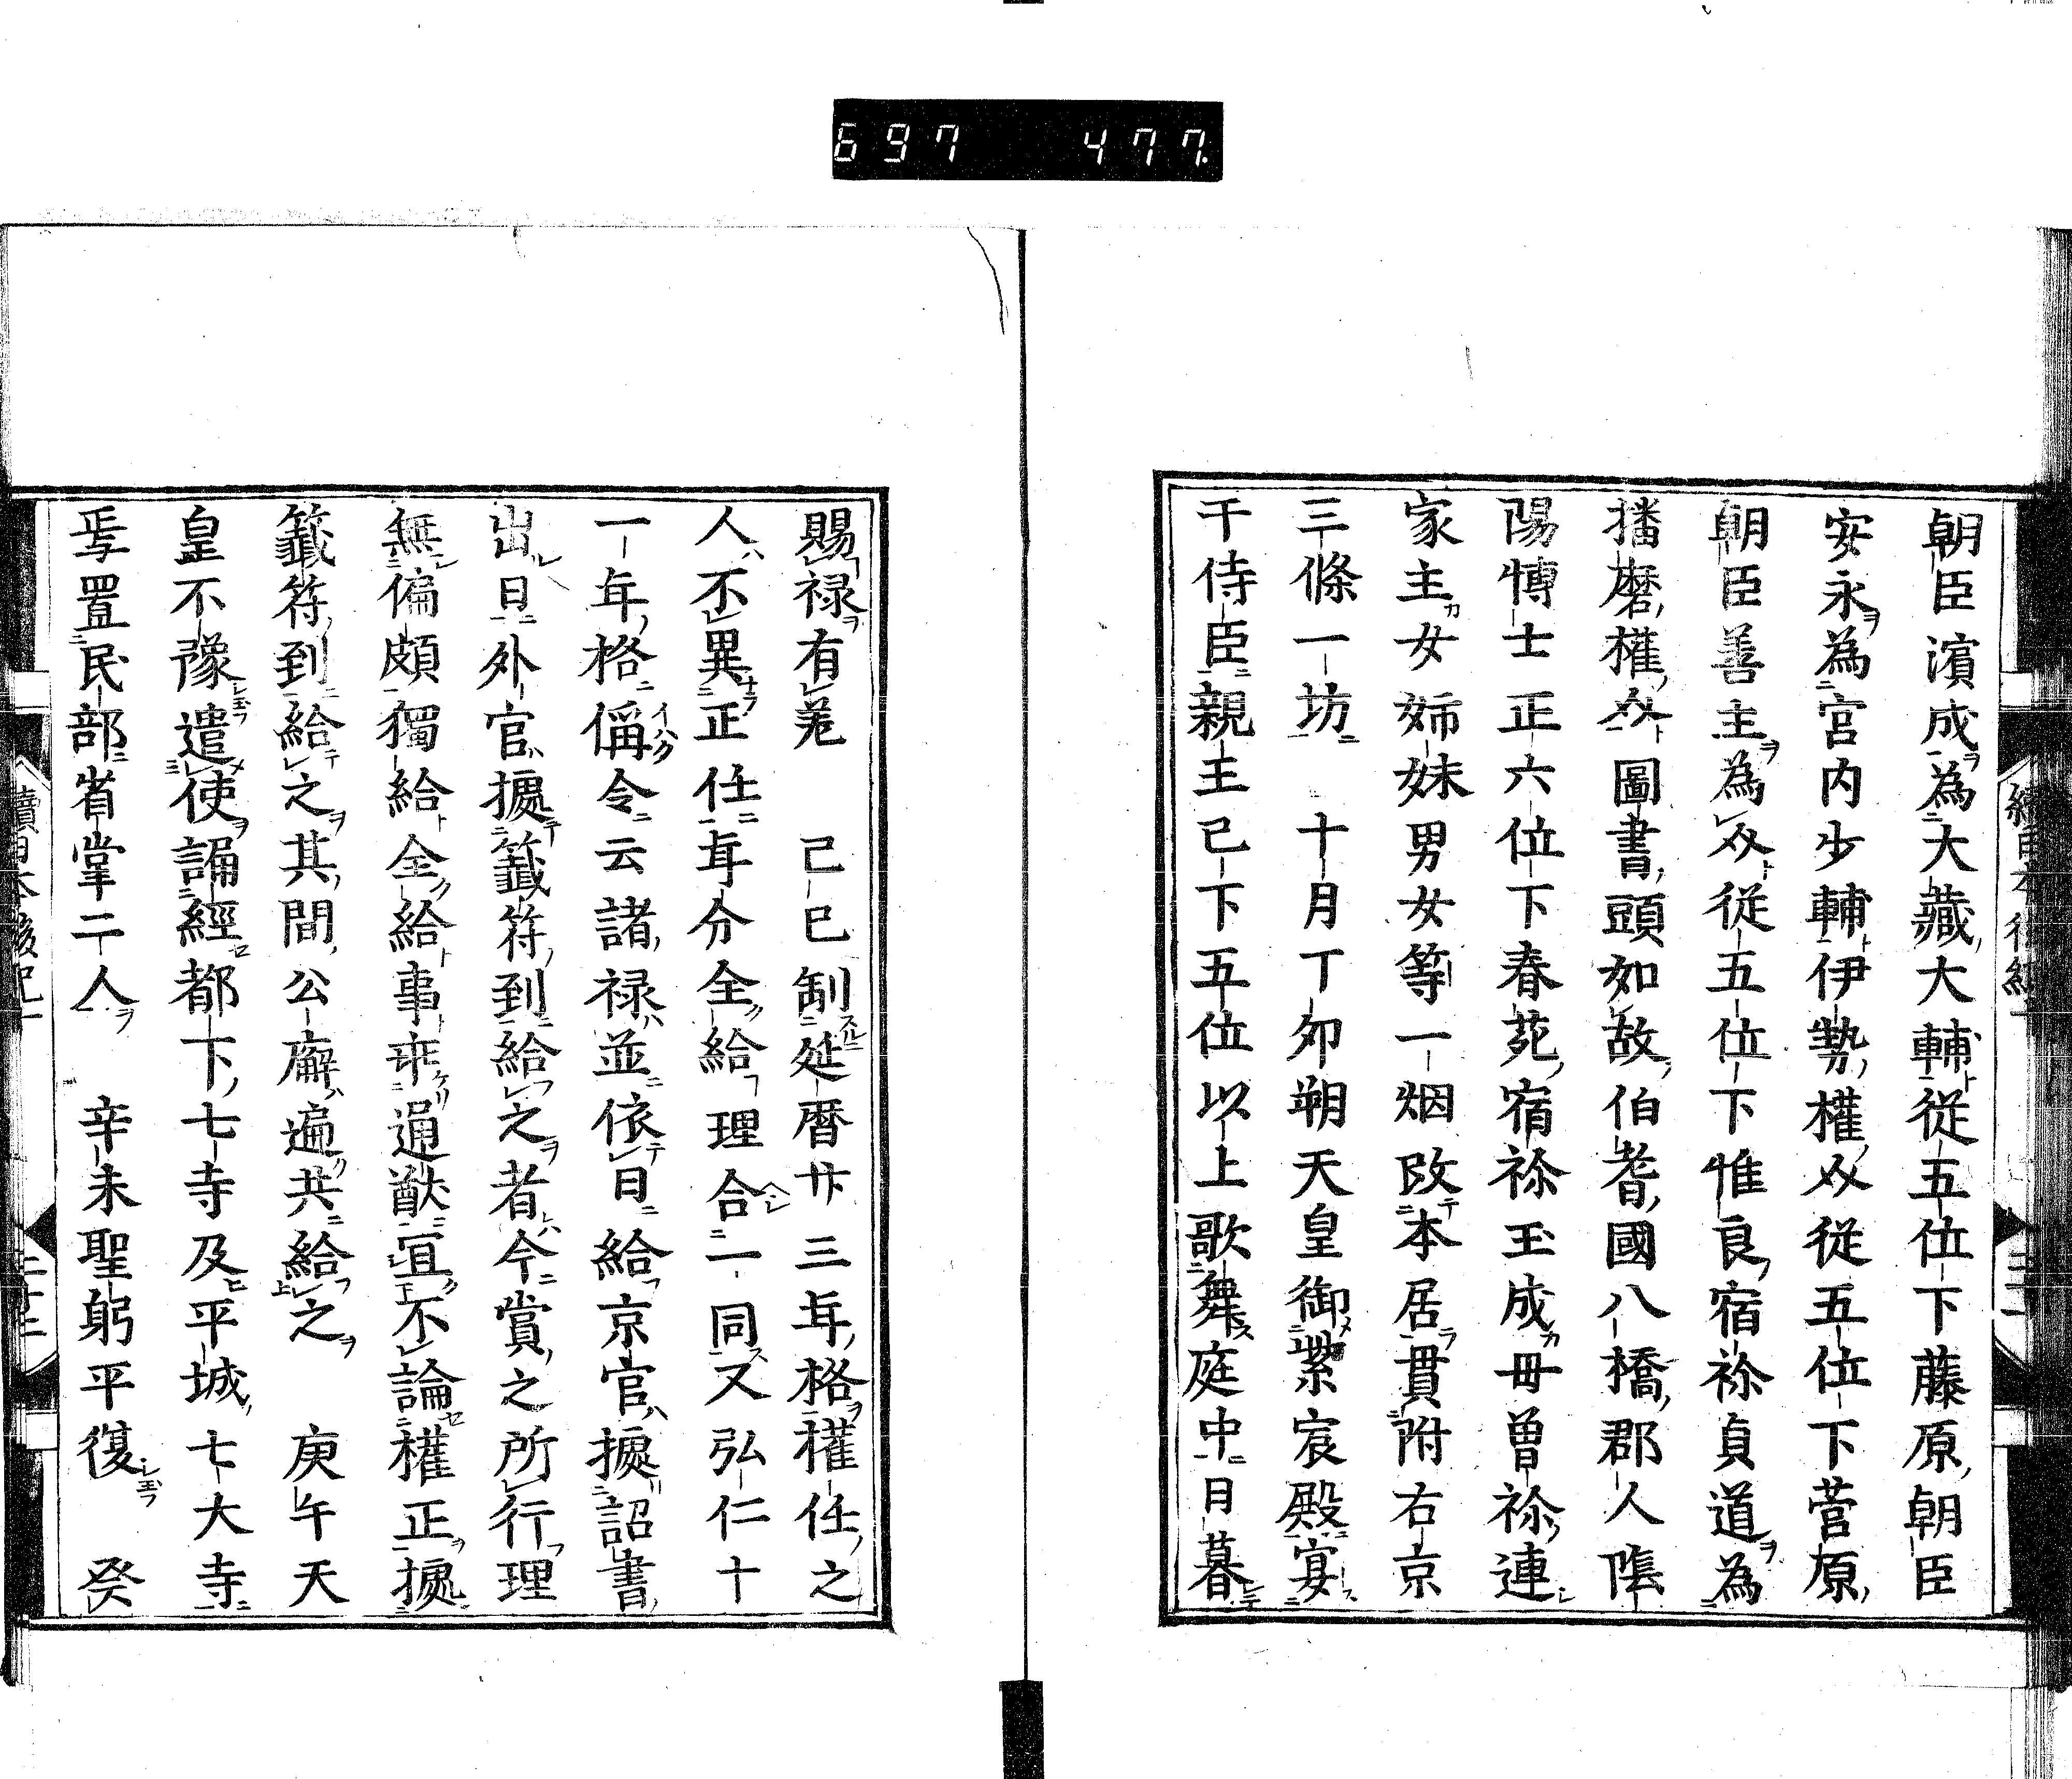 697 477.
朝臣濱成為大藏大輔従五位下藤原朝臣
安永為宮内少輔伊勢權㕛従五位下菅原
朝臣善主為㕛従五位下惟良宿祢貞道為
播磨權㕛圖書頭如故伯耆國八橋郡人陰
陽博士正六位下春苑宿祢玉成毋曾祢連
家主女姉妹男女等一烟改本居貫附右京
三條一坊 十月丁夘朔天皇御紫宸殿宴
于侍臣親王已下五位以上歌舞庭中日暮
賜禄有差 己巳制延暦廿三年格權任之
人不異正任年分全給理合一同又弘仁十
一年格偁令云諸禄並依日給京官據詔書
出日外官據籤符到給之者今賞之所行理
無偏頗獨給全給事乖通猷宜不論權正據
籤符到給之其間公廨遍共給之 庚午天
皇不豫遣使誦經都下七寺及平城七大寺
焉置民部省掌二人 辛未聖躬平復 癸